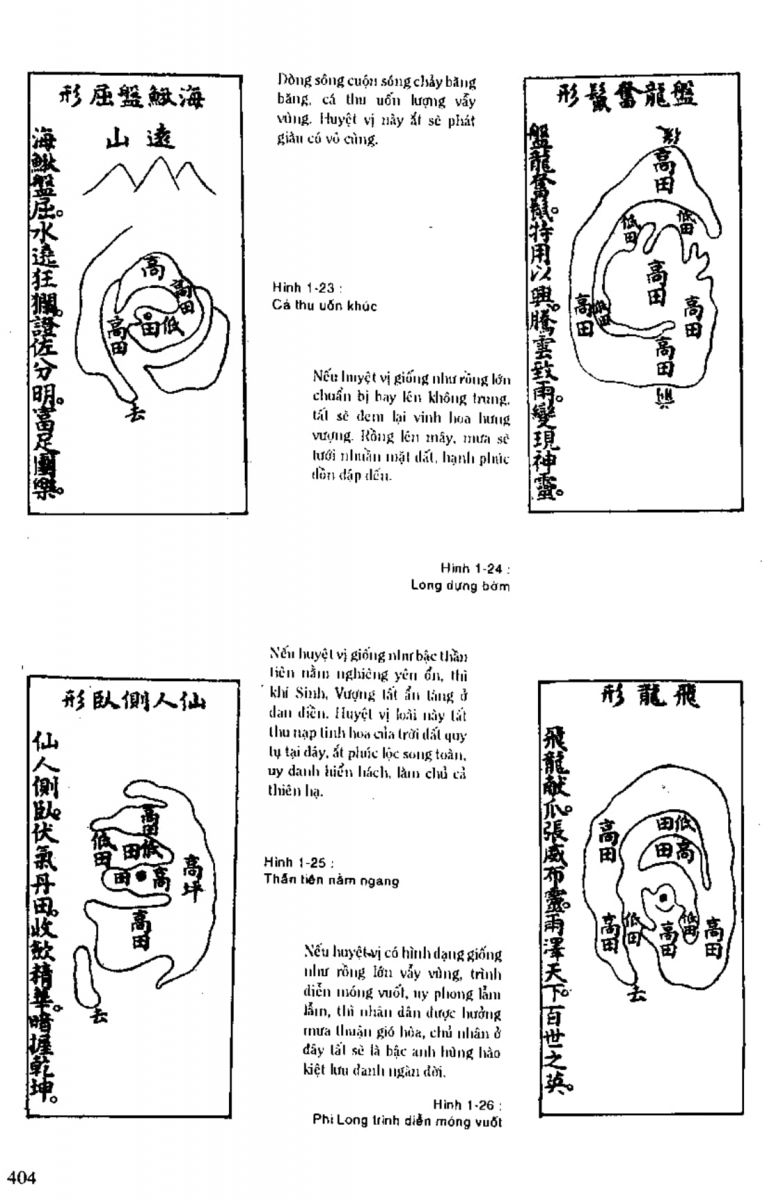 海鰍盤屈形
遠山
海鰍盤屈。水遶狂瀾。證佐分明。富足團欒。
高
高田
高田
低田
去
Dòng sông cuộn sóng chảy băng
băng, cá thu uốn lượng vẫy
vùng. Huyệt vị này ắt sẽ phát
giàu có vô cùng.
Hình 1-23 :
Cá thu uốn khúc
盤龍奮鬣形
盤龍奮鬣。特用以興。騰雲致雨。變現神靈。
高田
低田
低田
高田
高田
低田
高田
高田
Nếu huyệt vị giống như rồng lớn
chuẩn bị bay lên không trung,
tất sẽ đem lại vinh hoa hưng
vượng. Rồng lên mây, mưa sẽ
tưới nhuần mặt đất, hạnh phúc
dồn dập đến.
Hình 1-24 :
Long dựng bờm
仙人側臥形
仙人側臥。伏氣丹田。收斂精華。暗握乾坤。
高田
低田
低田
高田
高坪
高田
去
Nếu huyệt vị giống như bậc thần
tiên nằm nghiêng yên ổn, thì
khí Sinh, Vượng tất ẩn tàng ở
đan điền. Huyệt vị loài này tất
thu nạp tinh hoa của trời đất quy
tụ tại đây, ắt phúc lộc song toàn,
uy danh hiển hách, làm chủ cả
thiên hạ.
Hình 1-25 :
Thần tiên nằm ngang
飛龍形
飛龍献爪。張威布靈。雨澤天下。百世之英。
高田
低田
高田
高田
低田
高田
低田
高田
去
Nếu huyệt vị có hình dạng giống
như rồng lớn vẫy vùng, trình
diễn móng vuốt, uy phong lẫm
lẫm, thì nhân dân được hưởng
mưa thuận gió hòa, chủ nhân ở
đây tất sẽ là bậc anh hùng hào
kiệt lưu danh ngàn đời.
Hình 1-26 :
Phi Long trình diễn móng vuốt
404